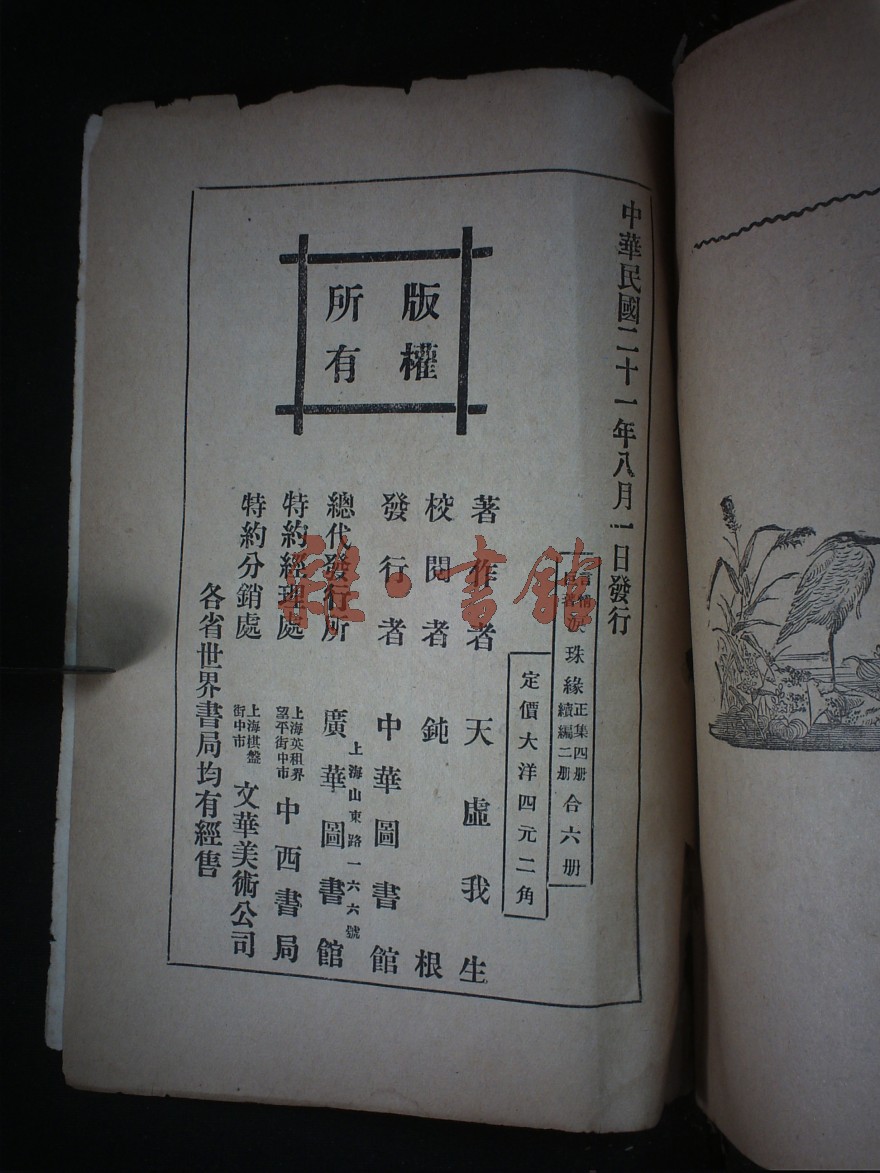 中華民國二十一年八月一日發行
言情
淚珠緣
正集四册
續編二册
合六册
定價大洋四元二角
版權
所有
著作者 天虛我生
校閱者 鈍根
發行者 中華圖書館
上海山東路一六六號
總代發行所 廣華圖書館
特約經理處
上海英租界
望平街中市
中西書局
特約分銷處
上海棋盤
街中市
文華美術公司
各省世界書局均有經售
雜·書館